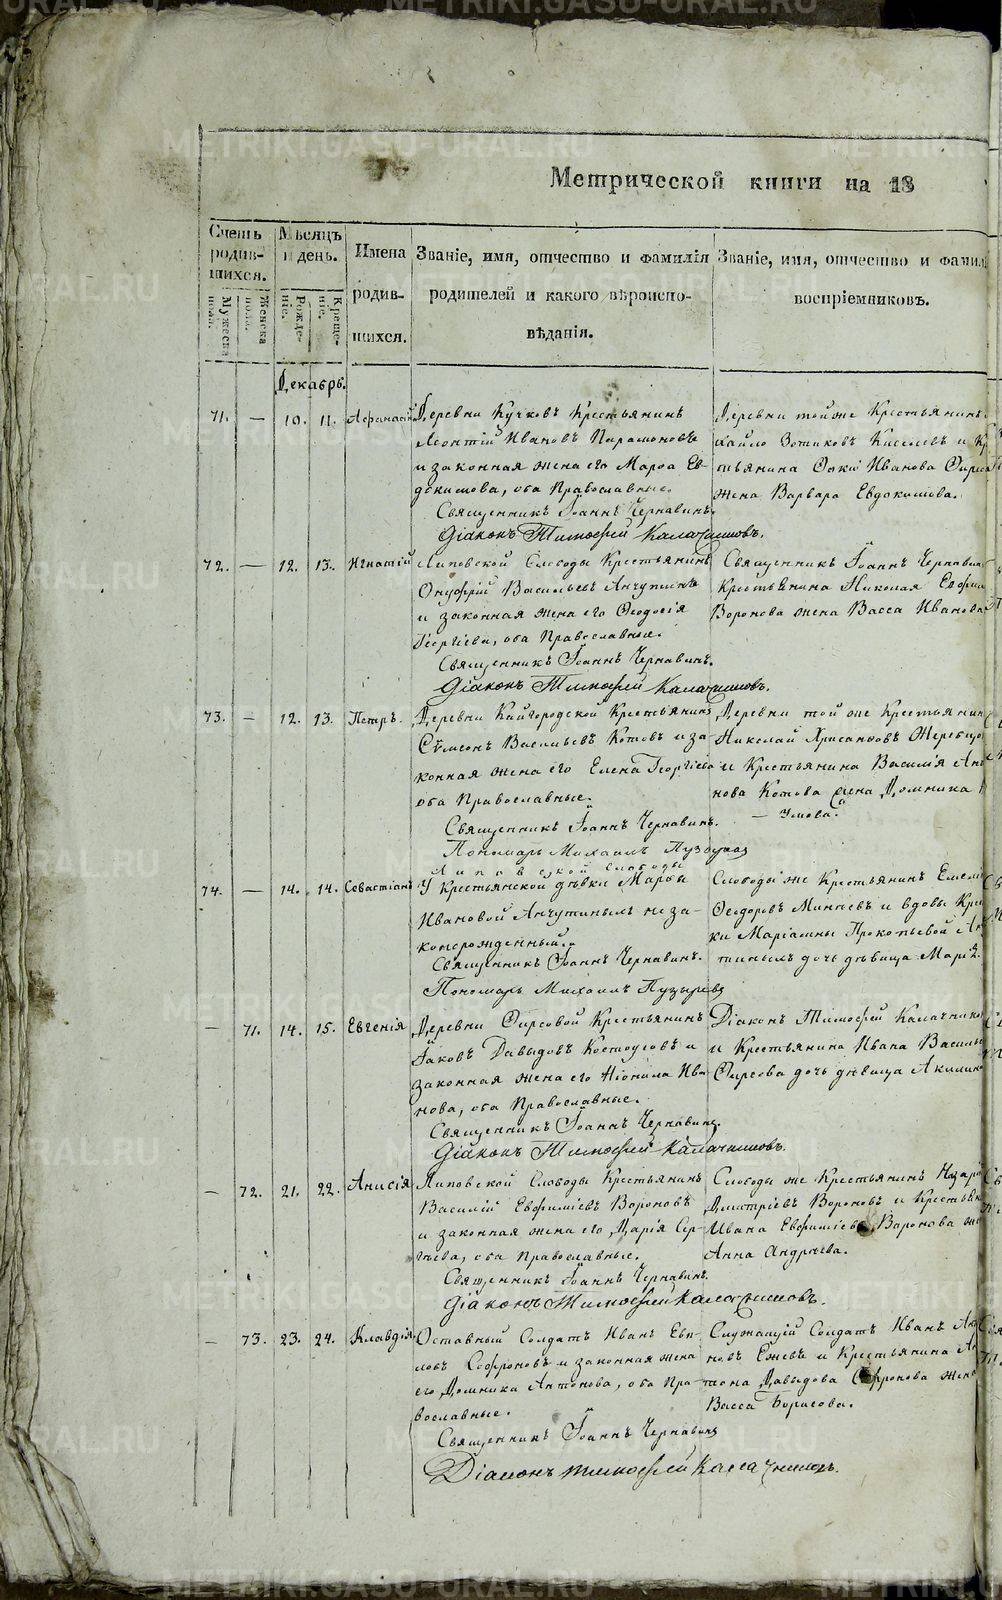 METRIKI.GASO-URAL.RU
Метрической книги на 18
Счетъ родив-шихся.
Мѣсяцъ и день.
Имена родив-шихся.
Званіе, имя, отчество и фамилія родителей и какого вѣроиспо-вѣданія.
Званіе, имя, отчество и фамил
воспріемниковъ.
Мужеска пола.
Женска пола.
Рожде-ніе.
Креще-ніе.
Декабрь.
71. — 10. 11. Афанасій
Деревни Кучковъ Крестьянинъ
Леонтій Ивановъ Парамоновъ
и законная жена его Марфа Ев-
докимова, оба Православные.
Священникъ Іоаннъ Чернавинъ.
Діаконъ Тимофей Калачниковъ.
Деревни той же Крестьянинъ
хайло Зотиковъ Киселевъ и Кр
тьянина Ивана
жена Варвара Евдокимова.
72. — 12. 13. Игнатій
Липовской Слободы Крестьянинъ
Онуфрій Васильевъ Анчутинъ
и законная жена его Ѳеодосія
Георгіева, оба Православные.
Священникъ Іоаннъ Чернавинъ.
Діаконъ Тимофей Калачниковъ.
Священникъ Іоаннъ Чернавин
Крестьянина Николая Ефим
Воронова жена Васса Иванова
73. — 12. 13. Петръ.
Деревни Кайгородской Крестьянинъ
Сѵмеонъ Васильевъ Котовъ и за-
конная жена его Елена Георгіева
оба Православные.
Священникъ Іоаннъ Чернавинъ.
Пономарь Михаилъ Пузыревъ
Деревни той же Крестьянин
Николай Хрисанфовъ
и Крестьянина Василія Ан
нова Котова жена Домника
74. — 14. 14. Севастіанъ
Липовской Слободы
У Крестьянской дѣвки Марфы
Ивановой Анчутиныхъ неза-
конорожденный.
Священникъ Іоаннъ Чернавинъ.
Пономарь Михаилъ Пузыревъ
Слободы же Крестьянинъ Емел
Ѳеодоровъ Минѣевъ и вдовы Кре
ки Маріамны Прокопьевой Ан
тиныхъ дочь дѣвица Марія.
— 71. 14. 15. Евгенія
Деревни Фирсовой Крестьянинъ
Іаковъ Давыдовъ Костоусовъ и
законная жена его Неонила Ива-
нова, оба Православные.
Священникъ Іоаннъ Чернавинъ.
Діаконъ Тимофей Калачниковъ.
Діаконъ Тимофей Калачнико
и Крестьянина Ивана Василь
Фирсова дочь дѣвица Акилин
— 72. 21. 22. Анисія
Липовской Слободы Крестьянинъ
Василій Евфиміевъ Вороновъ
и законная жена его Дарія Сер-
гѣева, оба Православные.
Священникъ Іоаннъ Чернавинъ.
Діаконъ Тимофей Калачниковъ.
Слободы же Крестьянинъ Назарі
Дмитріевъ Вороновъ и Крестьян
Ивана Евфиміева Воронова же
Анна Андреева.
— 73. 23. 24. Клавдія
Отставный Солдатъ Иванъ Евп-
ловъ Софроновъ и законная жена
его Домника Антонова, оба Пра-
вославные.
Священникъ Іоаннъ Чернавинъ
Діаконъ Тимофей Калачниковъ.
Служащій Солдатъ Иванъ Ан
новъ Ежевъ и Крестьянина Ан
тона Давыдова Софронова жена
Васса Борисова.